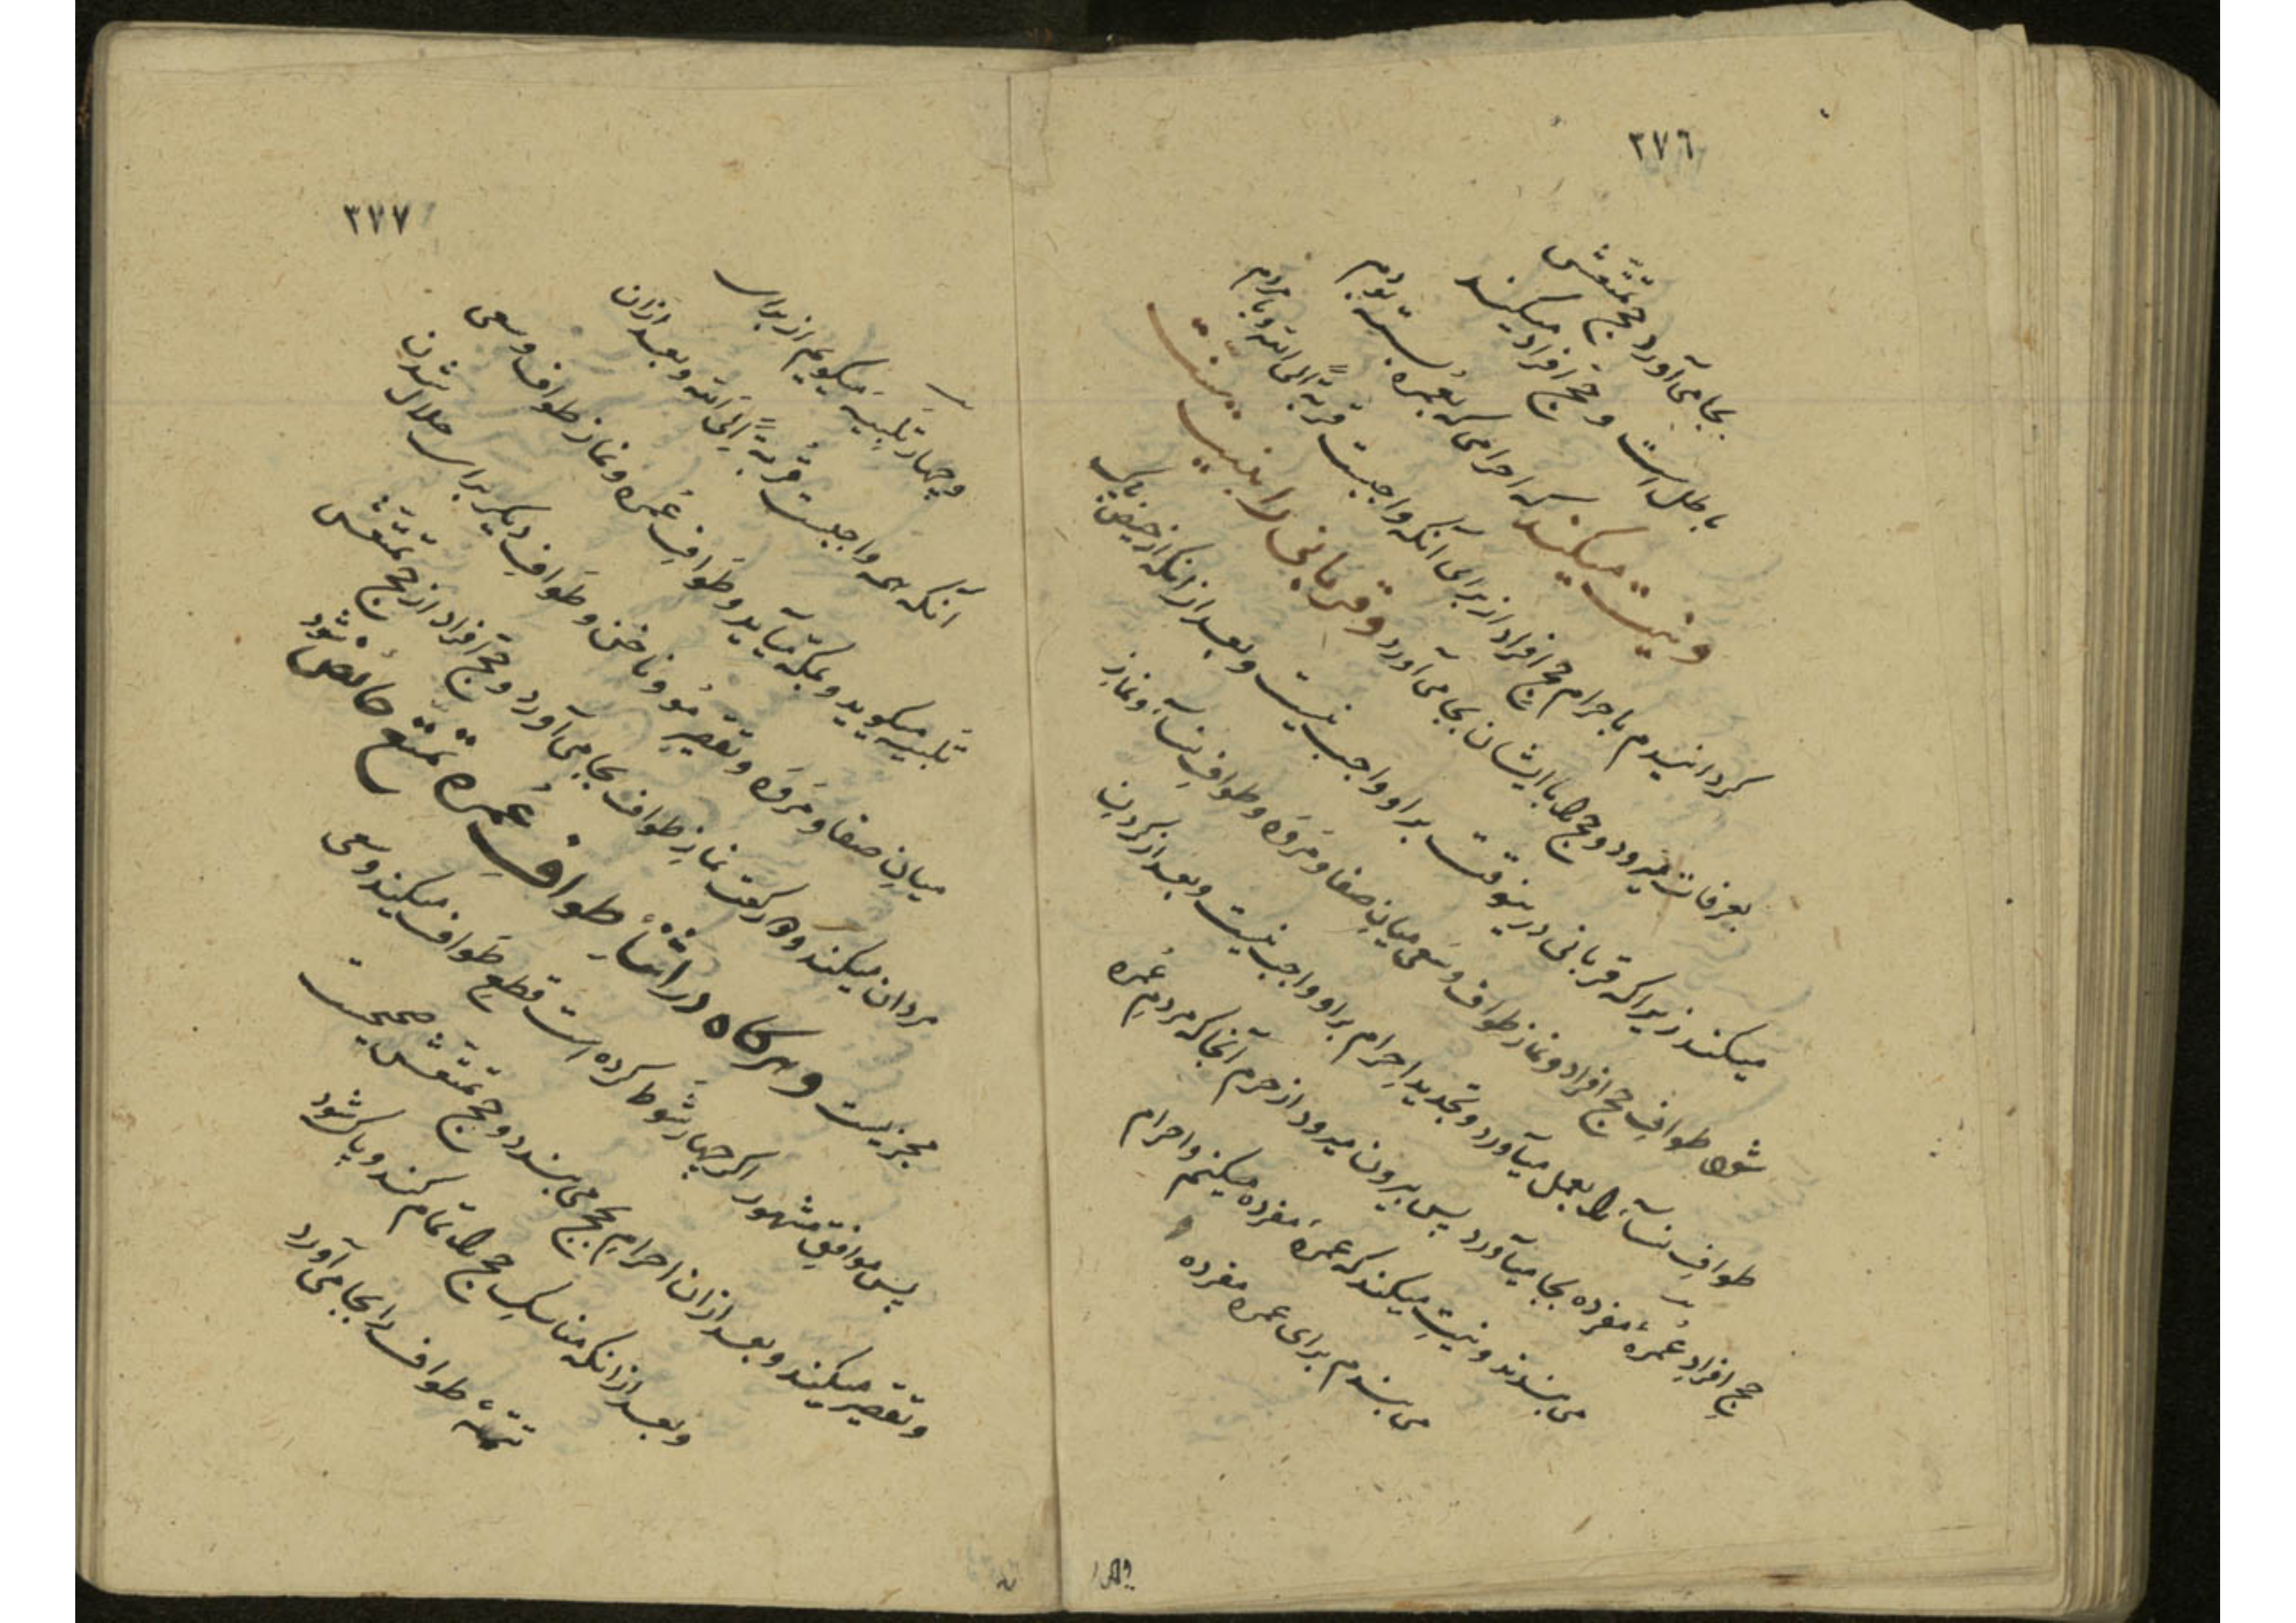 ٢٧٦
بجا می‌آورد حج تمتعش
باطل است و حج افراد میکند
ونیت میکند که احرامی که بعمره بسته بودم
کردانیدم باحرام حج افراد از برای آنکه واجبست قربةً الی الله و با مردم
بعرفات میرود و حج را باایشان بجا می آورد و قربانی را نیت
میکند زیرا که قربانی درینوقت براو واجب نیست و بعد از انکه از حیض پاک
شود طوافِ حج افراد و نماز طواف و سعی میانِ صفا و مَروَه و طوافِ نسآء و نمازِ
طوافِ نسآء را بعمل میآورد و تجدیدِ احرام براو واجب نیست و بعد از کردنِ
حج افرادِ عُمرۀ مفرده بجا میآورد پس بیرون میرود از حرم آنجا که مردم عُمره
می بندند و نیتِ میکند که عمرَۀ مفرده میکنم و احرام
می بندم برای عمره مفرده
٢٧٧
و چهار تَلبیَه میکویم از برای
آنکه همه واجبست قُربةً اِلَی الله و بعد ازان
تلبیه میکوید و بمکّه میآید و طَوافِ عُمره و نماز طواف و سعی
میانِ صفا و مَروَه و تقصیر مُو و ناخن و طَوافِ دیکر برای حلال شدن
مردان میکند و دو رکعت نمازِ طواف بجا می آورد و حج افراد از حج تمتّعش
مجزیست و هرکاه در اثنآءِ طوافِ عُمرۀ تمتّع حائض شود
پس موافقِ مشهور اکر چهار شَوط کرده است قطعِ طَواف میکند و سعی
و تقصیر میکند و بعد ازان احرامِ بحج می بندد و حج تمتّعش صحیحست
و بعد از انکه مناسکِ حج را تمام کند و پاک شود
تتمّۀ طواف را بجا می آورد